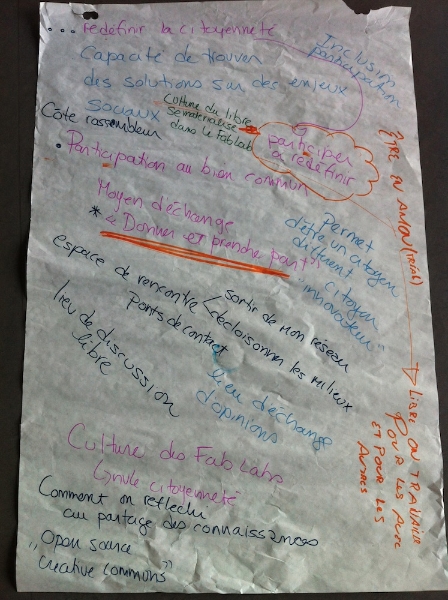 ... redéfinir la citoyenneté
Inclusion
participation
Capacité de trouver
des solutions sur des enjeux
sociaux
Culture du libre
se matérialise
dans le FabLab
participer
à redéfinir
Côté rassembleur
• Participation au bien commun
Moyen d'échange
* "Donner et prendre part"
Être en amont (idéal)
Permet
d'être un citoyen
différent
"citoyen
innovateur"
espace de rencontre
sortir de mon réseau
décloisonner les milieux
Ponts de contact
lieu de discussion
libre
lieu d'échange
d'opinions
Libre on travaille
pour les avec
et pour les
autres
Culture des Fab Labs
citoyenneté
Comment on réfléchi
au partage des connaissances
"Open source
Creative commons"